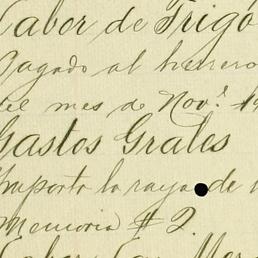 Labor de Trigo
Pagado al herrero
del mes de Nov.
Gastos Grales
Importa la raya de
Memoria # 2.